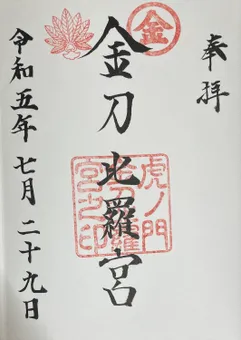 奉拝
金
金刀比羅宮
虎ノ門
金刀比羅
宮之印
令和五年七月二十九日